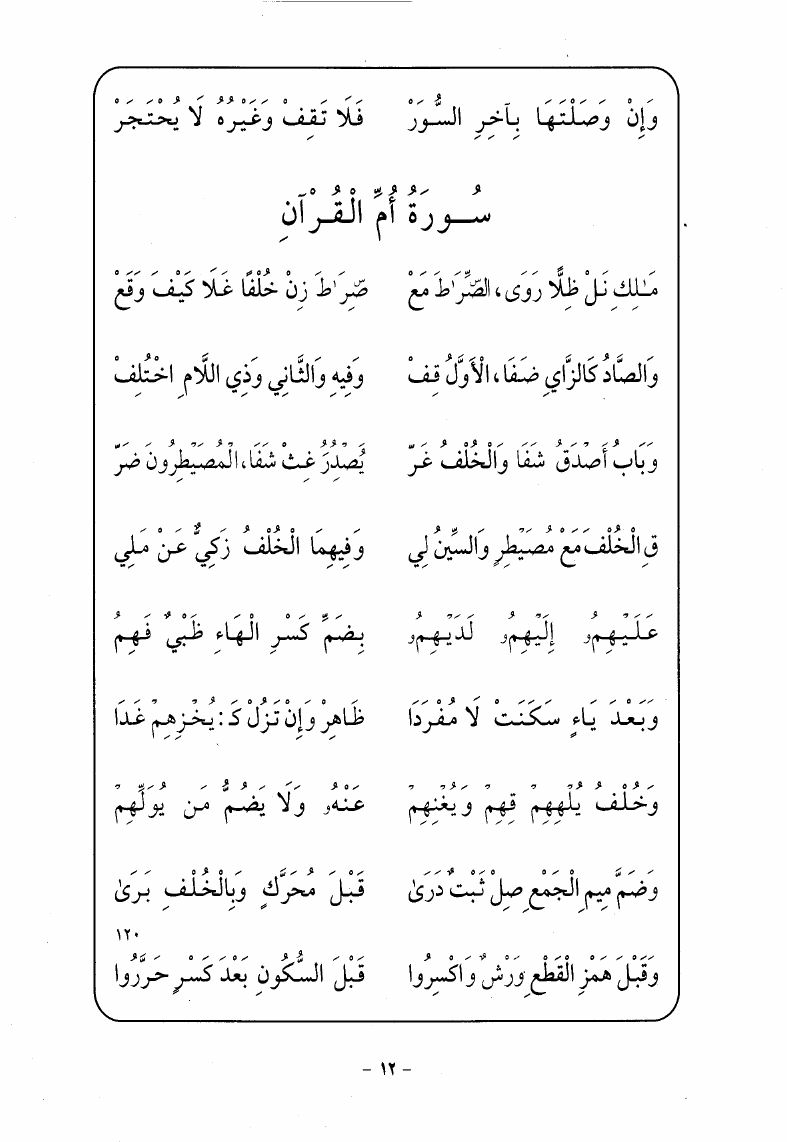 وَإِنْ وَصَلْتَهَا بِآخِرِ السُّوَرْ فَلَا تَقِفْ وَغَيْرُهُ لَا يُحْتَجَرْ
سُورَةُ أُمِّ الْقُرْآنِ
مَـٰلِكِ نَلْ ظِلًّا رَوَى، الصِّرَٰطَ مَعْ صِرَٰطَ زِنْ خُلْفًا غَلَا كَيْفَ وَقَعْ
وَالصَّادُ كَالزَّايِ ضَفَا، الْأَوَّلُ قِفْ وَفِيهِ وَالثَّانِي وَذِي اللَّامِ اخْتُلِفْ
وَبَابُ أَصْدَقُ شَفَا وَالْخُلْفُ غَرّْ يُصْدُرُ غِثْ شَفَا، الْمُصَيْطِرُونَ ضَرّْ
قِ الْخُلْفَ مَعْ مُصَيْطِرٍ وَالسِّينُ لِي وَفِيهِمَا الْخُلْفُ زَكِيٌّ عَنْ مَلِي
عَلَيْهِمُو إِلَيْهِمُو لَدَيْهِمُو بِضَمِّ كَسْرِ الْهَاءِ ظَبْيٌ فَهِمُ
وَبَعْدَ يَاءٍ سَكَنَتْ لَا مُفْرَدَا ظَاهِرْ وَإِنْ تَزُلْ كَـ: يُخْزِهِمْ غَدَا
وَخُلْفُ يُلْهِهِمْ قِهِمْ وَيُغْنِهِمْ عَنْهُو وَلَا يَضُمُّ مَن يُوَلِّهِمْ
وَضَمَّ مِيمِ الْجَمْعِ صِلْ ثَبْتٌ دَرَىٰ قَبْلَ مُحَرَّكٍ وَبِالْخُلْفِ بَرَىٰ
١٢٠
وَقَبْلَ هَمْزِ الْقَطْعِ وَرْشٌ وَاكْسِرُوا قَبْلَ السُّكُونِ بَعْدَ كَسْرٍ حَرَّرُوا
- ١٢ -